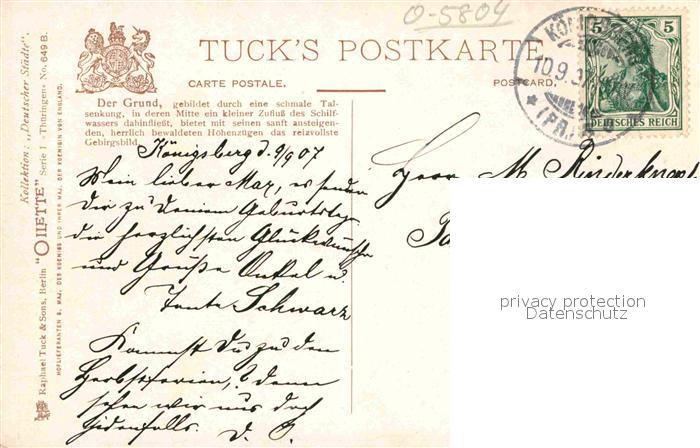 O-5804
TUCK'S POSTKARTE
CARTE POSTALE.
POSTCARD.
Der Grund, gebildet durch eine schmale Tal-
senkung, in deren Mitte ein kleiner Zufluß des Schilf-
wassers dahinfließt, bietet mit seinen sanft ansteigen-
den, herrlich bewaldeten Höhenzügen das reizvollste
Gebirgsbild.
Kollektion: „Deutscher Städte“.
"OILETTE" Serie I „Thüringen“ No. 649 B.
Raphael Tuck & Sons, Berlin
HOFLIEFERANTEN S. MAJ. DES KOENIGS UND IHRER MAJ. DER KOENIGIN VON ENGLAND.
5 5
DEUTSCHES REICH
10.9.07
(PR.)
Königsberg d. 9/9 07
Mein lieber Max, es senden
Dir zu Deinem Geburtstag
die herzlichsten Glückwünsche
und Grüße Onkel u.
Tante Schwarz
Kommst Du zu den
Herbstferien,? denn
sehen wir uns doch
jedenfalls. D. O.
Herrn M. Rinderknopf
privacy protection
Datenschutz